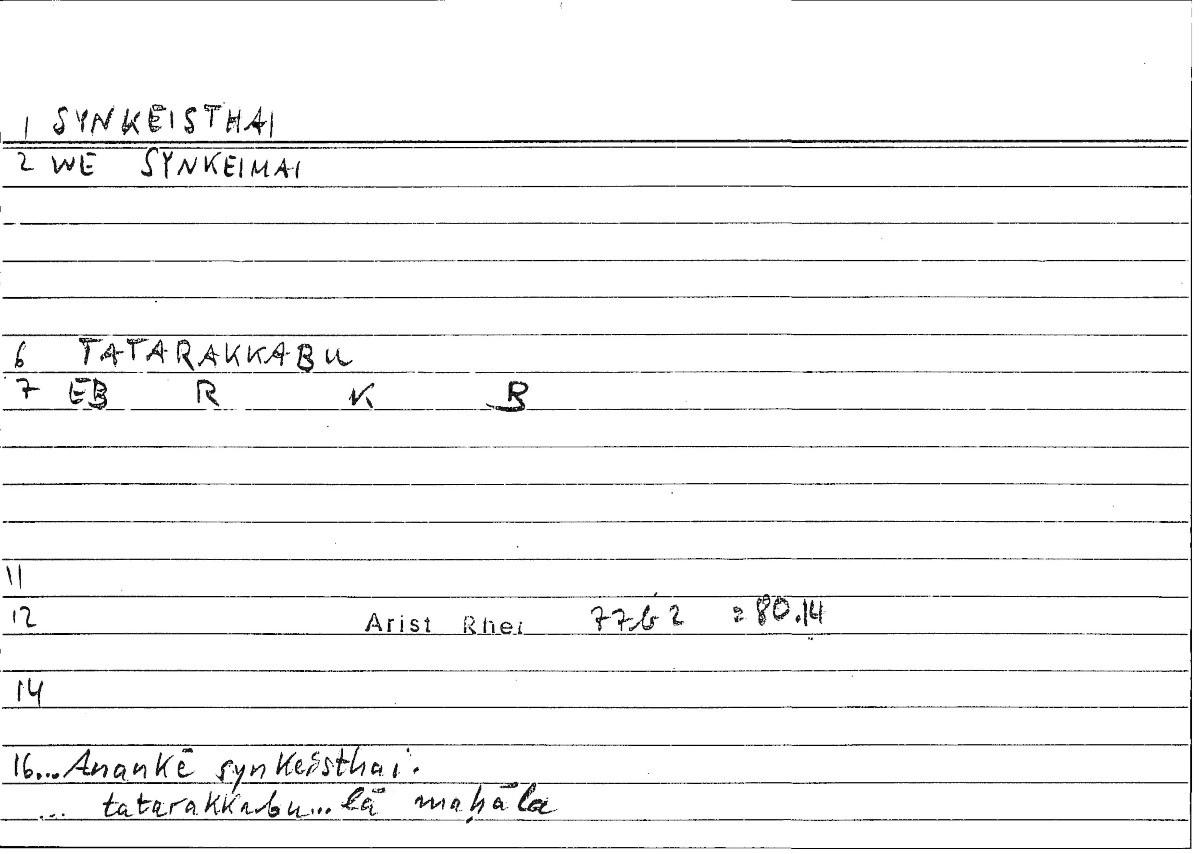 1 SYNKEISTHAI
2 WE SYNKEIMAI
6 TATARAKKABU
7 EB R K B
11
12 Arist Rhet 77b2 = 80.14
14
16... Anankē synkeisthai.
... tatarakkabu... lā maḥāla